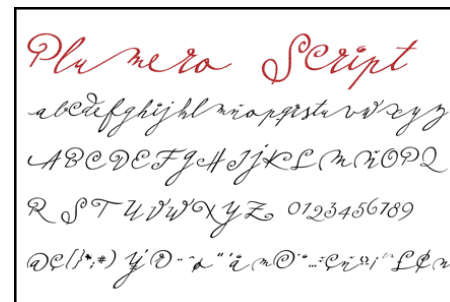 Plumero Script
abcdefghijklmnñopqrstuvwxyz
ABCDEFGHIJKLMNÑOPQ
RSTUVWXYZ 0123456789